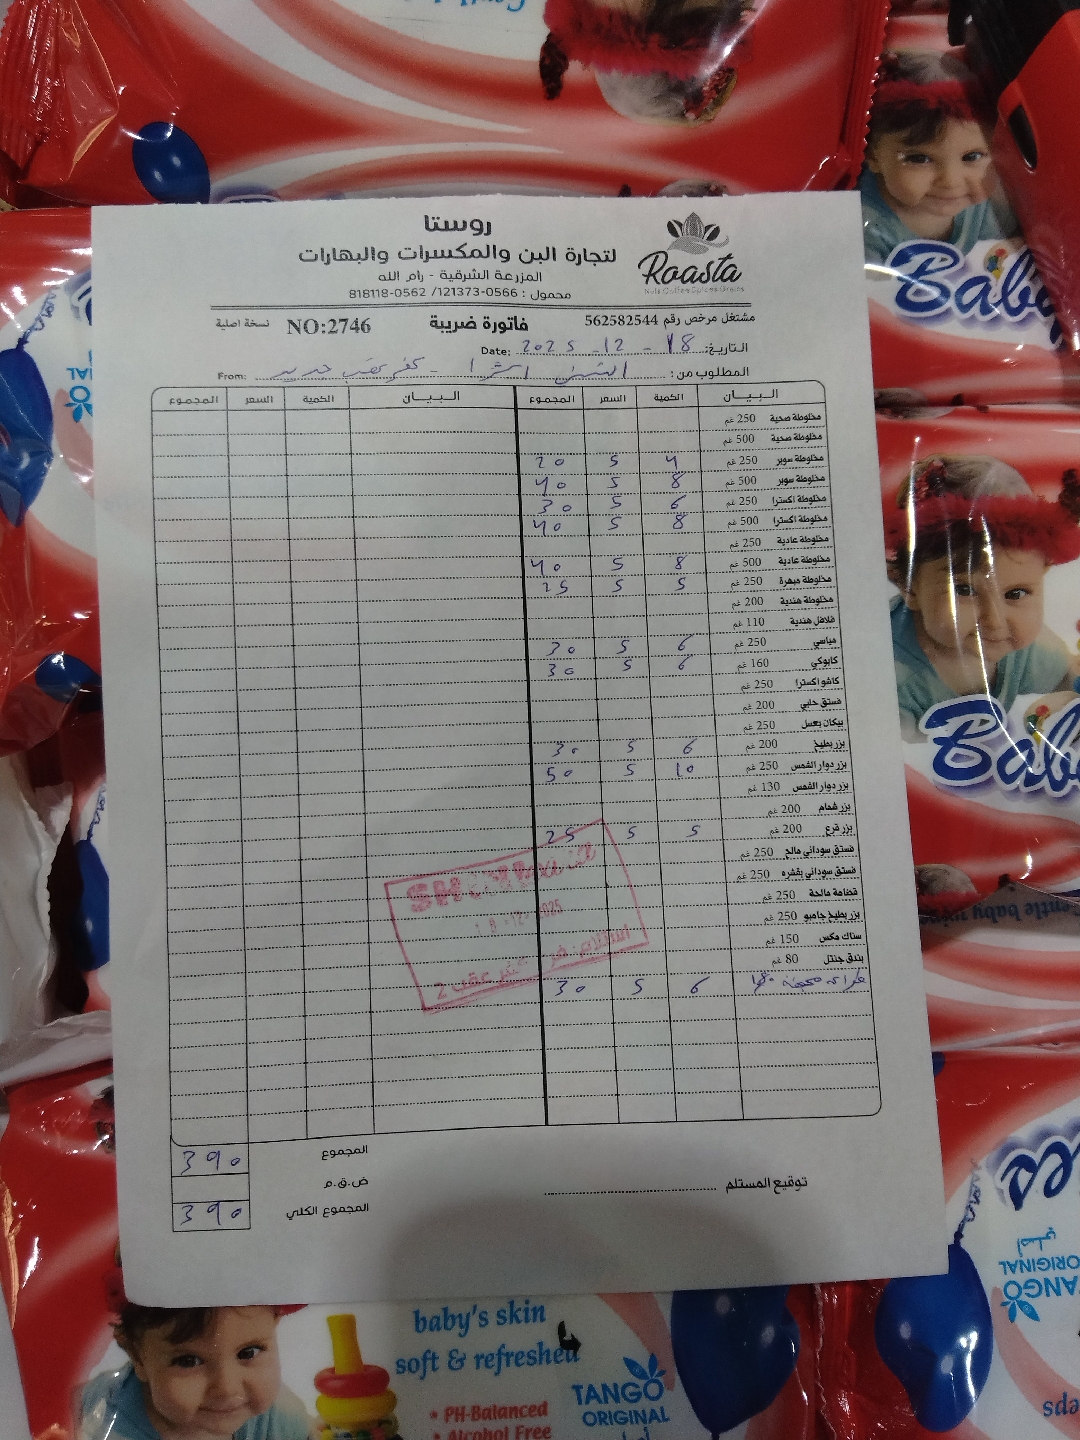 روستا
لتجارة البن والمكسرات والبهارات
المزرعة الشرقية - رام الله
محمول : 0566-121373 /0562-818118
Roasta
Nuts Coffee Spices Grains
مشتغل مرخص رقم 562582544 فاتورة ضريبة NO:2746 نسخة اصلية
التاريخ: 18 - 12 - 2025 Date:
المطلوب من: الشني اكسترا - كفر عقب جديد From:
البيان الكمية السعر المجموع البيان الكمية السعر المجموع
مخلوطة صحية 250 غم
مخلوطة صحية 500 غم
مخلوطة سوبر 250 غم 4 5 20
مخلوطة سوبر 500 غم 8 5 40
مخلوطة اكسترا 250 غم 6 5 30
مخلوطة اكسترا 500 غم 8 5 40
مخلوطة عادية 250 غم
مخلوطة عادية 500 غم 8 5 40
مخلوطة مبهرة 250 غم 5 5 25
مخلوطة هندية 200 غم
فلافل هندية 110 غم
مباسي 250 غم 6 5 30
كابوكي 160 غم 6 5 30
كاشو اكسترا 250 غم
فستق حلبي 200 غم
بيكان بعسل 250 غم
بزر بطيخ 200 غم 6 5 30
بزر دوار الشمس 250 غم 10 5 50
بزر دوار الشمس 130 غم
بزر شمام 200 غم
بزر قرع 200 غم 5 5 25
فستق سوداني مالح 250 غم
فستق سوداني بقشره 250 غم
قضامة مالحة 250 غم
بزر بطيخ جامبو 250 غم
سناك مكس 150 غم
بندق جنتل 80 غم
6 5 30
استلام فرع كفر عقب 2
المجموع 390
ض.ق.م
المجموع الكلي 390
توقيع المستلم
Baby
Baby
baby's skin
soft & refreshed
TANGO
ORIGINAL
• PH-Balanced
• Alcohol Free
TANGO
ORIGINAL
أصلي